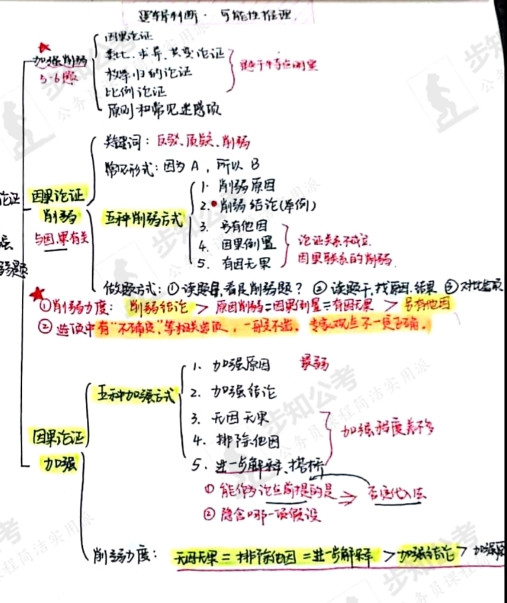 逻辑判断·可能性推理
加强削弱
5-6题
因果论证
类比、求异、共变论证
枚举归纳论证
比例论证
原则和常见迷惑项
关键词：反驳、质疑、削弱
常见形式：因为A，所以B
因果论证
削弱
与因果有关
五种削弱方式
1. 削弱原因
2. 削弱结论(举例)
3. 另有他因
4. 因果倒置
5. 有因无果
论证关系不成立
因果联系的削弱
①削弱力度：削弱结论 > 原因削弱=因果倒置=有因无果 > 另有他因
②选项中有“不确定”等相关选项，一般不选。专家观点不一定正确。
因果论证
加强
五种加强方式
1. 加强原因 最弱
2. 加强结论
3. 无因无果
4. 排除他因
5. 进一步解释、搭桥
加强强度差不多
①能作为论点前提的是 否定代入法
②隐含哪一项假设
削弱力度：无因无果=排除他因=进一步解释 > 加强结论 >
步知公考
公务员课程简洁实用派